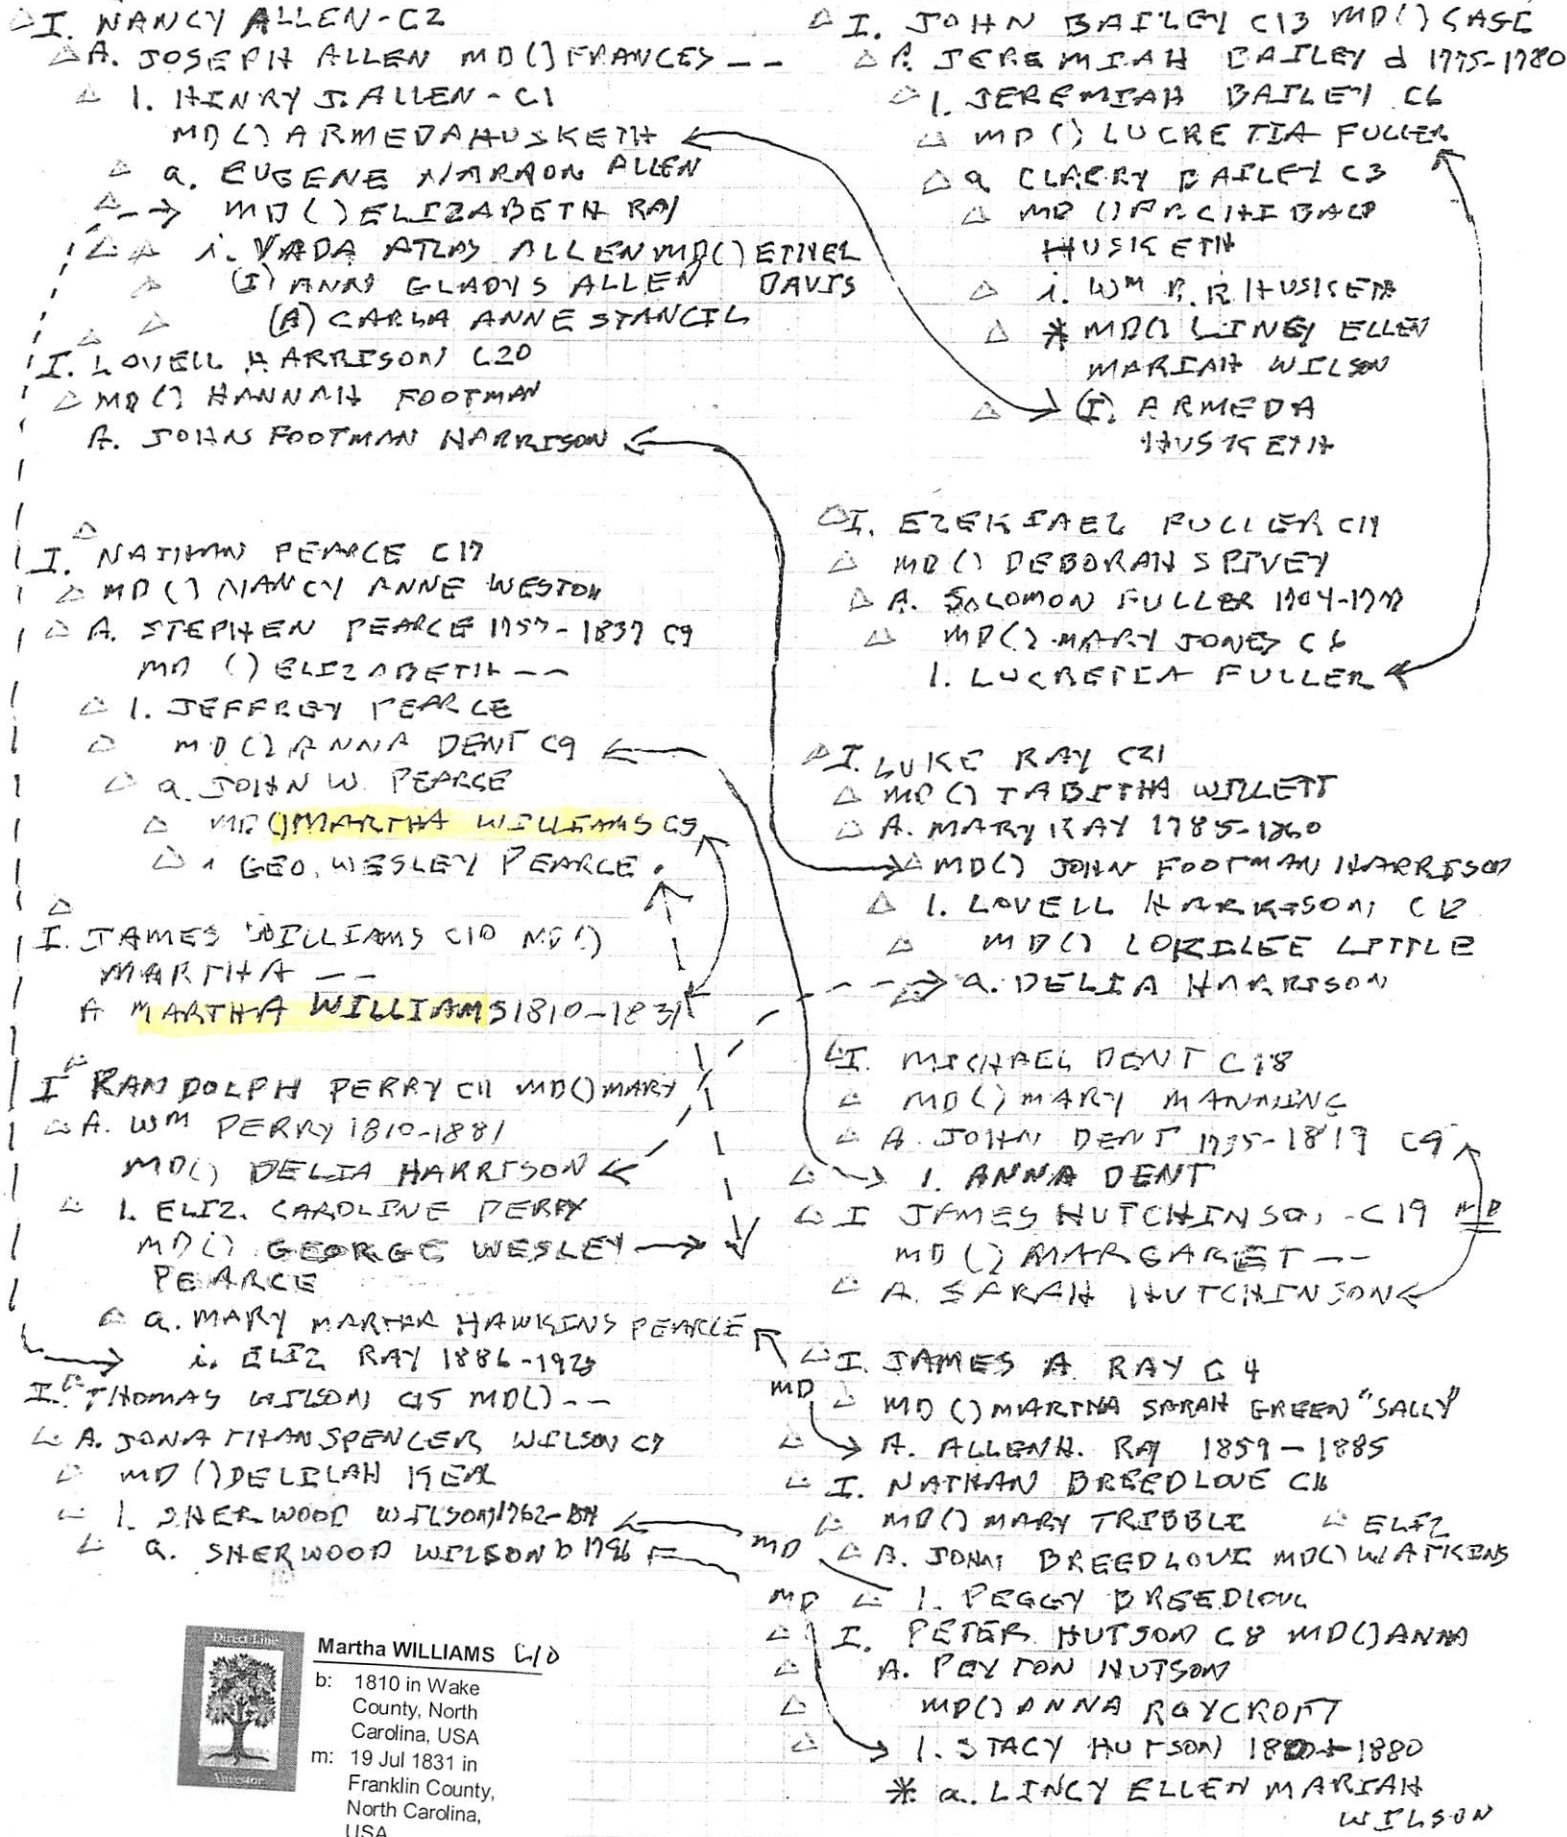 I. NANCY ALLEN-C2
A. JOSEPH ALLEN MD() FRANCES --
1. HINRY J. ALLEN - C1
MD() ARMEDA HUSKETH
a. EUGENE ALLEN
--> MD() ELIZABETH RAY
i. VADA ATLAS ALLEN MD() ETHEL
(I) ANN GLADYS ALLEN DAVIS
(A) CARLA ANNE STANCIL
I. LOVELL HARRISON C20
MD() HANNAH FOOTMAN
A. JOHN FOOTMAN HARRISON
I. NATHAN PEARCE C17
MD() NANCY ANNE WESTON
A. STEPHEN PEARCE 1757-1837 C9
MD () ELIZABETH --
1. JEFFREY PEARCE
MD() ANNA DENT C9
a. JOHN W. PEARCE
MD() MARTHA WILLIAMS C5
1 GEO. WESLEY PEARCE
I. JAMES WILLIAMS C10 MD()
MARTHA --
A MARTHA WILLIAMS 1810-1831
I RANDOLPH PERRY C11 MD() MARY
A. WM PERRY 1810-1881
MD() DELIA HARRISON
1. ELIZ. CAROLINE PERRY
MD() GEORGE WESLEY
PEARCE
a. MARY MARTHA HAWKINS PEARCE
i. ELIZ RAY 1886-1928
I. THOMAS WILSON C15 MD() --
A. JONATHAN SPENCER WILSON C7
MD () DELILAH KEAL
1. SHERWOOD WILSON 1762-
a. SHERWOOD WILSON b 1796
I. JOHN BAILEY C13 MD() CASE
A. JEREMIAH BAILEY d 1775-1780
1. JEREMIAH BAILEY C6
MD () LUCRETIA FULLER
a CLARRY BAILEY C3
MD () ARCHIBALD
HUSKETH
i. WM R. R HUSKETH
* MD() LINCY ELLEN
MARIAH WILSON
(I). ARMEDA
HUSKETH
I. EZEKIAEL FULLER C14
MD () DEBORAH SPIVEY
A. SOLOMON FULLER 1704-
MD() MARY JONES C6
1. LUCRETIA FULLER
I. LUKE RAY C21
MD () TABITHA WILLETT
A. MARY RAY 1785-1860
MD() JOHN FOOTMAN HARRISON
1. LOVELL HARRISON C12
MD() LORILEE LITTLE
a. DELIA HARRISON
I. MICHAEL DENT C18
MD() MARY MANNING
A. JOHN DENT 1735-1819 C9
1. ANNA DENT
I JAMES HUTCHINSON - C19 MD
MD () MARGARET --
A. SARAH HUTCHINSON
I. JAMES A RAY C4
MD
MD () MARTHA SARAH GREEN "SALLY"
A. ALLEN H. RAY 1859-1885
I. NATHAN BREEDLOVE C16
MD() MARY TRIBBLE ELIZ
MD
A. JOHN BREEDLOVE MD() WATKINS
1. PEGGY BREEDLOVE
MD
I. PETER HUTSON C8 MD() ANNA
A. PEYTON HUTSON
MD() ANNA ROYCROFT
1. STACY HUTSON 1880
* a. LINCY ELLEN MARIAH
WILSON
Direct Line
Ancestor
Martha WILLIAMS C10
b: 1810 in Wake
County, North
Carolina, USA
m: 19 Jul 1831 in
Franklin County,
North Carolina,
USA